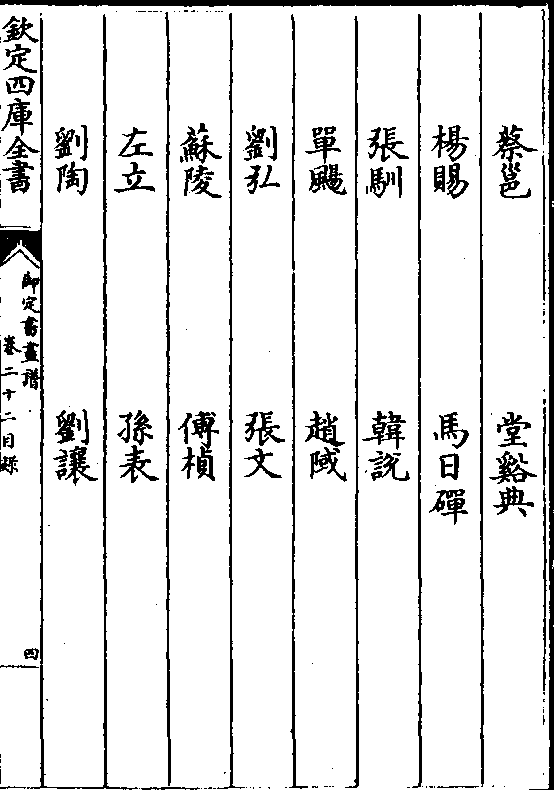 蔡邕　堂谿典
楊賜　馬日磾
張馴　韓說
單颺　趙㦽
劉弘　張文
蘇陵　傅楨
左立　孫表
劉陶　劉讓
欽定四庫全書
御定書畫譜
卷二十二目錄
四